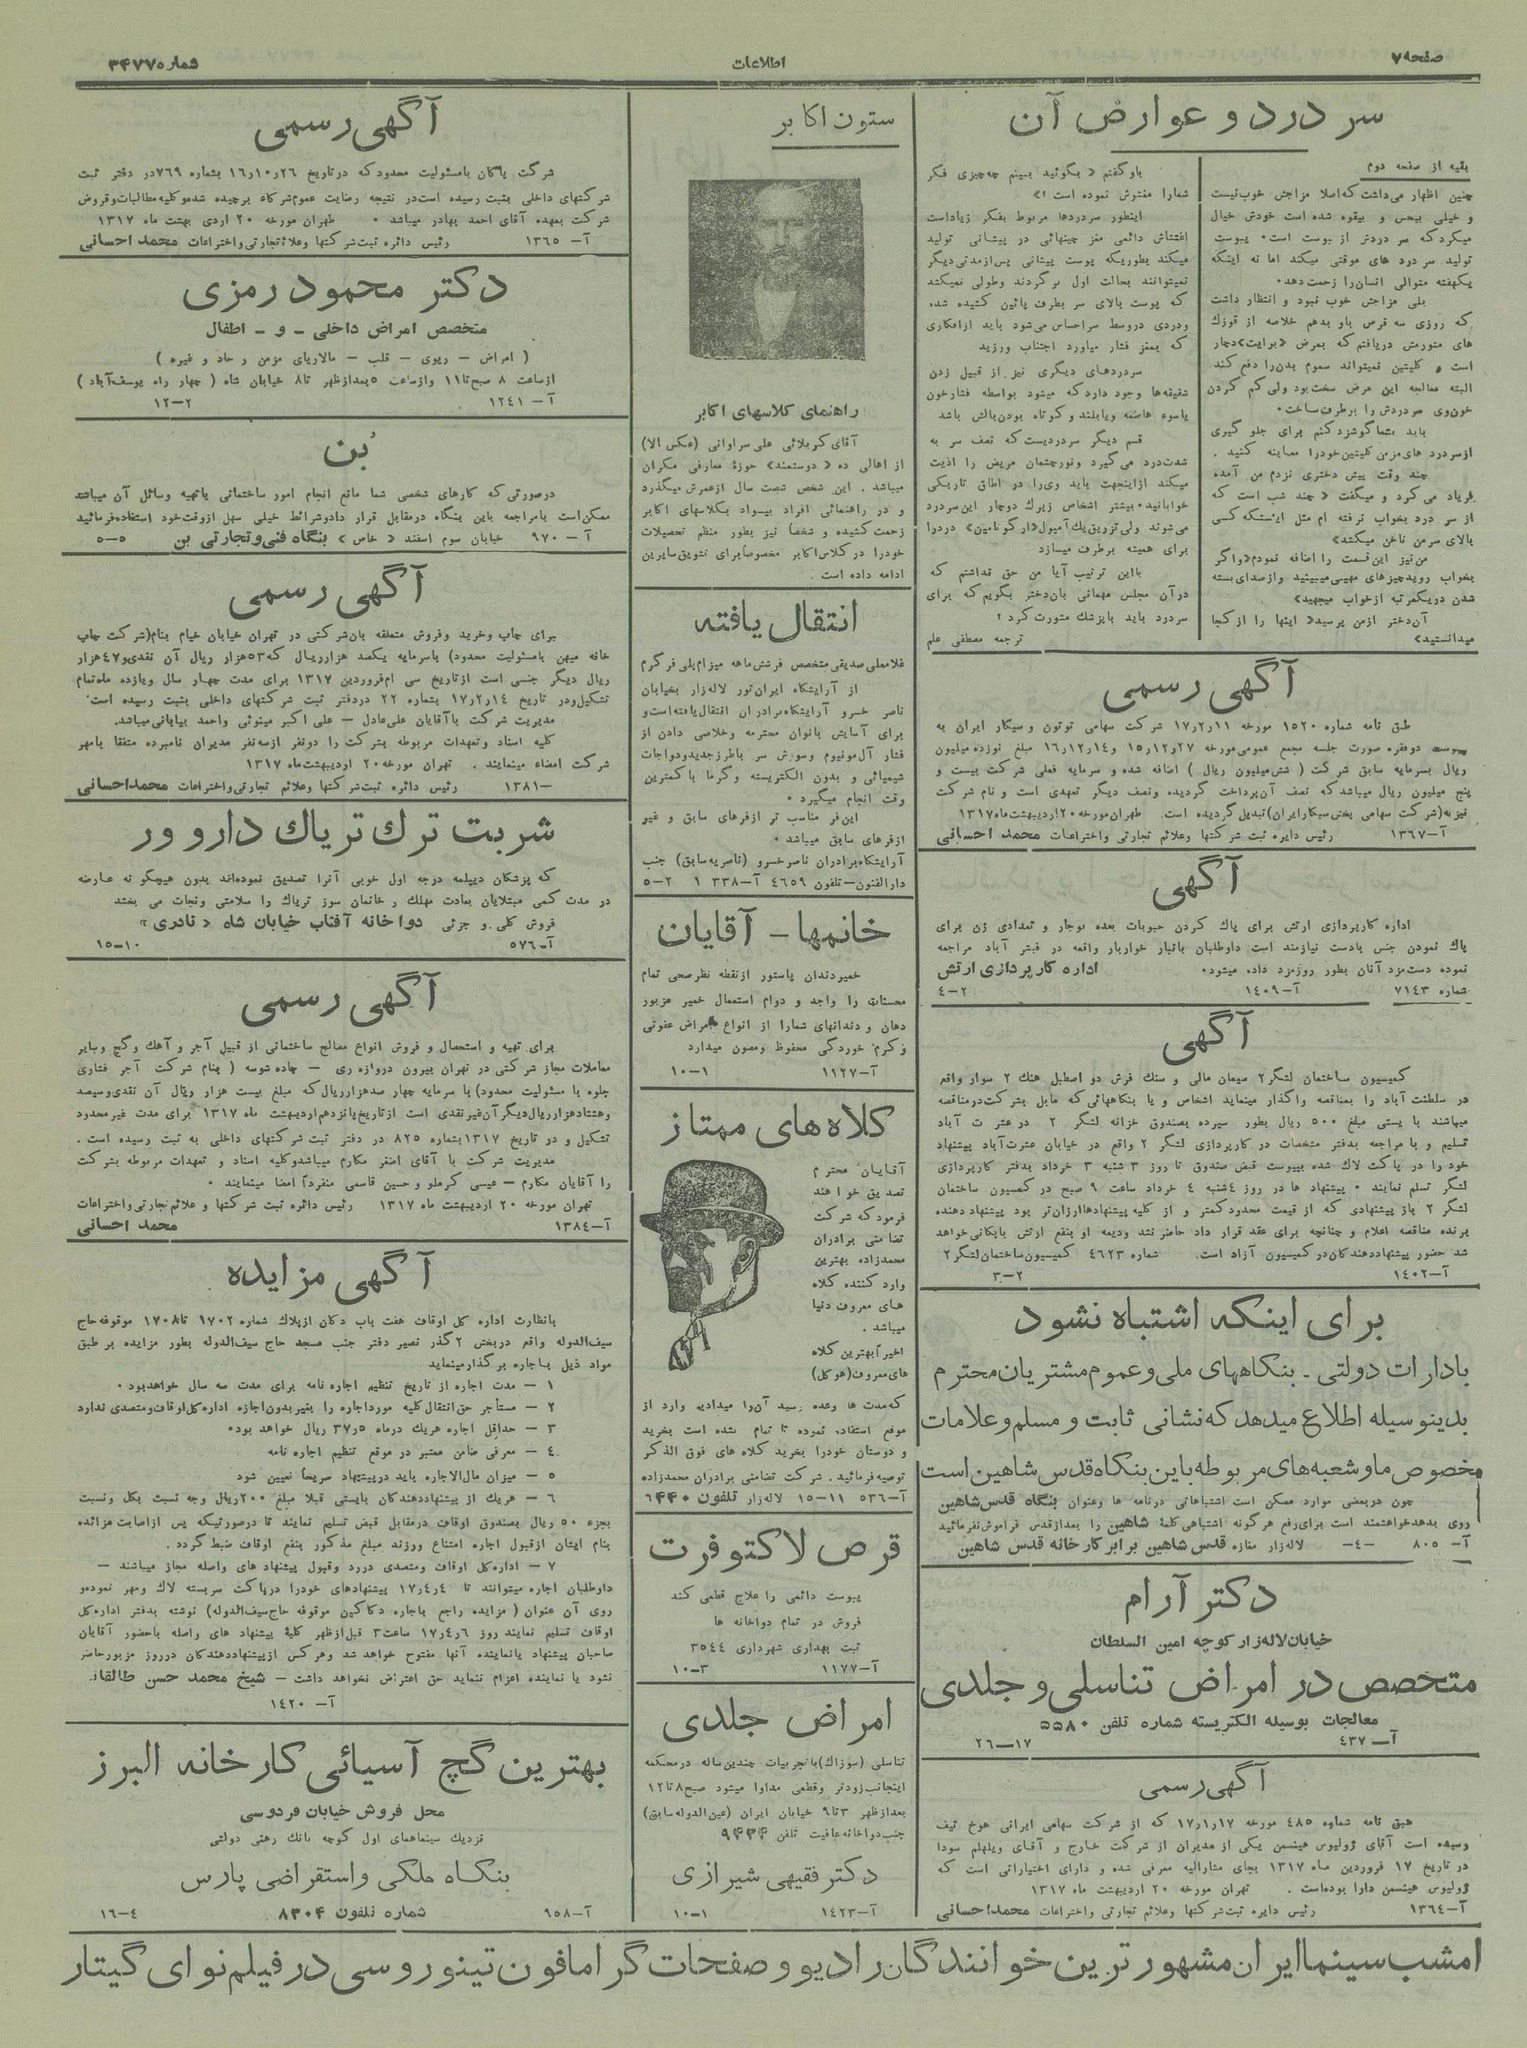 صفحه ۷
اطلاعات
شماره ۳۴۷۷
سر درد و عوارض آن
بقیه از صفحه دوم
چنین اظهار می‌داشت که اصلا مزاجش خوب نیست
و خیلی بیحس و بیقوه شده است خودش خیال
میکرد که سر دردش از یبوست است۰ یبوست
تولید سر درد های موقتی میکند اما نه اینکه
یکهفته متوالی انسان را زحمت دهد۰
بلی مزاجش خوب نبود و انتظار داشت
که روزی سه قرص باو بدهم خلاصه از قوزک
های متورمش دریافتم که بمرض «برایت» دچار
است و کلیتین نمیتواند سموم بدن را دفع کند
البته معالجه این مرض سخت بود ولی کم کردن
خون وی سردردش را برطرف ساخت۰
باید بشما گوشزد کنم برای جلو گیری
از سردرد های مزمن کلیتین خود را معاینه کنید .
چند وقت پیش دختری نزدم من آمده
فریاد می کرد و میگفت « چند شب است که
از سر درد بخواب نرفته ام مثل اینستکه کسی
بالای سر من ناخن میکشد»
من نیز این قسمت را اضافه نمودم «واگر
بخواب روید چیزهای مهیبی میبینید و از صدای بسته
شدن در یکمرتبه از خواب میجهید»
آن دختر از من پرسید « اینها را از کجا
میدانستید»
باو گفتم « بگوئید ببینم چه چیزی فکر
شما را مغشوش نموده است ؟»
اینطور سردردها مربوط بفکر زیاد است
اغتشاش دائمی مغز چینهائی در پیشانی تولید
میکند بطوریکه پوست پیشانی پس از مدتی دیگر
نمیتوانند بحالت اول برگردند وطولی نمیکشد
که پوست بالای سر بطرف پائین کشیده شده
ودردی در وسط سر احساس می‌شود باید از افکاری
که بمغز فشار میاورد اجتناب ورزید
سردردهای دیگری نیز از قبیل زدن
شقیقه‌ها وجود دارد که میشود بواسطه فشار خون
یا سوء هاضمه و یا بلند و کوتاه بودن بالش باشد
قسم دیگر سردردیست که نصف سر به
شدت درد می گیرد و نور چشمان مریض را اذیت
میکند از اینجهت باید وی را در اطاق تاریکی
خوابانید۰ بیشتر اشخاص زیرك دوچار این سردرد
می شوند ولی تزریق یك آمپول «ارگوتامین» درد را
برای همیشه برطرف میسازد
با این ترتیب آیا من حق نداشتم که
در آن مجلس مهمانی بان دختر بگویم که برای
سردرد باید با پزشك مشورت کرد ؟
ترجمه مصطفی علم
آگهی رسمی
طبق نامه شماره ۱۵۲۰ مورخه ۱۷ر۲ر۱۱ شرکت سهامی توتون و سیگار ایران به
پیوست دو فقره صورت جلسه مجمع عمومی مورخه ۱۵ر۱۲ر۲۷ و ۱۶ر۱۲ر۱۴ مبلغ نوزده میلیون
ریال بسرمایه سابق شرکت ( شش میلیون ریال ) اضافه شده و سرمایه فعلی شرکت بیست و
پنج میلیون ریال میباشد که نصف آن پرداخت گردیده و نصف دیگر تعهدی است و نام شرکت
نیز به (شرکت سهامی پخش سیگار ایران) تبدیل گردیده است. طهران مورخه ۲۰ اردیبهشت ماه ۱۳۱۷
آ–۱۳۶۷ رئیس دایره ثبت شرکتها و علائم تجارتی و اختراعات محمد احسانی
آگهی
اداره کارپردازی ارتش برای پاك کردن حبوبات بعده نوجار و تعدادی زن برای
پاك نمودن جنس با دست نیازمند است داوطلبان بانبار خواربار واقعه در قیشر آباد مراجعه
نموده دست مزد آنان بطور روزمزد داده میشود۰ اداره کارپردازی ارتش
شماره ۷۱۴۳ آ–۱۴۰۹ ۲–۴
آگهی
کمیسیون ساختمان لشگر ۲ سیمان مالی و سنك فرش دو اصطبل هنك ۲ سوار واقع
در سلطنت آباد را بمناقصه واگذار مینماید اشخاص و یا بنگاههائی که مایل بشرکت در مناقصه
میباشند بایستی مبلغ ۵۰۰ ریال بطور سپرده بصندوق خزانه لشگر ۲ در عشرت آباد
تسلیم و با مراجعه بدفتر مشخصات در کارپردازی لشگر ۲ واقع در خیابان عشرت آباد پیشنهاد
خود را در پاکت لاك شده بپیوست قبض صندوق تا روز ۳ شنبه ۳ خرداد بدفتر کارپردازی
لشگر تسلم نمایند ۰ پیشنهاد ها در روز ۴شنبه ۴ خرداد ساعت ۹ صبح در کمسیون ساختمان
لشگر ۲ باز پیشنهادی که از قیمت محدود کمتر و از کلیه پیشنهادها ارزان‌تر بود پیشنهاد دهنده
برنده مناقصه اعلام و چنانچه برای عقد قرار داد حاضر نشد ودیعه او بنفع ارتش بایگانی خواهد
شد حضور پیشنهاد دهندگان در کمیسیون آزاد است. شماره ۴۶۲۳ کمیسیون ساختمان لشگر ۲
آ–۱۴۰۲ ۲–۳
برای اینکه اشتباه نشود
بادارات دولتی - بنگاههای ملی و عموم مشتریان محترم
بدینوسیله اطلاع میدهد که نشانی ثابت و مسلم و علامات
مخصوص ما و شعبه های مربوطه باین بنگاه قدس شاهین است
چون در بعضی موارد ممکن است اشتباهاتی در نامه ها و عنوان بنگاه قدس شاهین
روی بدهد خواهشمند است برای رفع هرگونه اشتباهی کلمهٔ شاهین را بعد از قدس فراموش نفرمائید
آ– ۸۰۵ –۴– لاله زار مغازه قدس شاهین برابر کارخانه قدس شاهین
دکتر آرام
خیابان لاله زار کوچه امین السلطان
متخصص در امراض تناسلی و جلدی
معالجات بوسیله الکتریسته شماره تلفن ۵۵۸۰
آ– ۴۳۷ ۱۷–۲۶
آگهی رسمی
طبق نامه شماره ۴۸۵ مورخه ۱۷ر۱ر۱۷ که از شرکت سهامی ایرانی هوخ تیف
رسیده است آقای ژولیوس هینسمن یکی از مدیران از شرکت خارج و آقای ویلهلم سودا
در تاریخ ۱۷ فروردین ماه ۱۳۱۷ بجای مشارالیه معرفی شده و دارای اختیاراتی است که
ژولیوس هینسمن دارا بوده است . تهران مورخه ۲۰ اردیبهشت ماه ۱۳۱۷
آ–۱۳۶۴ رئیس دایره ثبت شرکتها وعلائم تجارتی و اختراعات محمد احسانی
ستون اکابر
راهنمای کلاسهای اکابر
آقای کربلائی علی سراوانی (عکس بالا)
از اهالی ده « دوستمند» حوزهٔ معارفی مکران
میباشد . این شخص شصت سال از عمرش میگذرد
و در راهنمائی افراد بیسواد بکلاسهای اکابر
زحمت کشیده و شخصاً نیز بطور منظم تحصیلات
خود را در کلاس اکابر مخصوصاً برای تشویق سایرین
ادامه داده است .
انتقال یافته
غلامعلی صدیقی متخصص فرشش ماهه میزامپلی فر گرم
از آرایشگاه ایران تور لاله زار بخیابان
ناصر خسرو آرایشگاه برادران انتقال یافته است و
برای آسایش بانوان محترمه و خلاصی دادن از
فشار آلمونیوم و سوزش سر با طرز جدید و دواجات
شیمیائی و بدون الکتریسته و گرما با کمترین
وقت انجام میگیرد ۰
این فر مناسب تر از فرهای سابق و غیر
از فرهای سابق میباشد ۰
آرایشگاه برادران ناصر خسرو (ناصریه سابق) جنب
دارالفنون–تلفون ۴۶۵۹ آ–۳۳۸ ۱ ۲–۵
خانمها - آقایان
خمیر دندان پاستور از نقطه نظر صحی تمام
محسنات را واجد و دوام استعمال خمیر مزبور
دهان و دندانهای شما را از انواع امراض عفونی
و کرم خوردگی محفوظ ومصون میدارد
آ–۱۱۲۷ ۱–۱۰
کلاه های ممتاز
آقایان محترم
تصدیق خواهند
فرمود که شرکت
تضامنی برادران
محمدزاده بهترین
وارد کننده کلاه
های معروف دنیا
میباشد .
اخیراً بهترین کلاه
های معروف (هوکل)
که مدت ها وعده رسید آن را میدادیم وارد از
موقع استفاده نموده تا تمام نشده است بخرید
و دوستان خود را بخرید کلاه های فوق الذکر
توصیه فرمائید. شرکت تضامنی برادران محمدزاده
آ–۵۳۶ ۱۱–۱۵ لاله زار تلفون ۶۴۴۰
قرص لاکتوفرت
یبوست دائمی را علاج قطعی کند
فروش در تمام دواخانه ها
ثبت بهداری شهرداری ۳۵۴۴
آ–۱۱۷۷ ۳–۱۰
امراض جلدی
تناسلی (سوزاك) با تجربیات چندین ساله در محکمه
اینجانب زودتر و قطعی مداوا میشود صبح ۸ تا ۱۲
بعدازظهر ۳ تا ۹ خیابان ایران (عین الدوله سابق)
جنب دواخانه عافیت تلفن ۹۴۳۴
دکتر فقیهی شیرازی
آ–۱۴۲۳ ۱–۱۰
آگهی رسمی
شرکت پاکان با مسئولیت محدود که در تاریخ ۱۶ر۱۰ر۲۶ بشماره ۷۶۹ در دفتر ثبت
شرکتهای داخلی بثبت رسیده است در نتیجه رضایت عموم شرکاء برچیده شده و کلیه مطالبات و قروض
شرکت بعهده آقای احمد بهادر میباشد ۰ طهران مورخه ۲۰ اردی بهشت ماه ۱۳۱۷
آ– ۱۳۶۵ رئیس دائره ثبت شرکتها و علائم تجارتی و اختراعات محمد احسانی
دکتر محمود رمزی
متخصص امراض داخلی - و - اطفال
( امراض – ریوی – قلب – مالاریای مزمن و حاد و غیره )
از ساعت ۸ صبح تا ۱۱ و از ساعت ۵ بعدازظهر تا ۸ خیابان شاه ( چهار راه یوسف‌آباد )
آ– ۱۲۴۱ ۲–۱۲
بُن
در صورتی که کارهای شخصی شما مانع انجام امور ساختمانی یا تهیه وسائل آن میباشد
ممکن است با مراجعه باین بنگاه در مقابل قرار داد و شرائط خیلی سهل از وقت خود استفاده فرمائید
آ– ۹۷۰ خیابان سوم اسفند « خاص » بنگاه فنی و تجارتی بن ۵–۵
آگهی رسمی
برای چاپ وخرید وفروش متعلقه بان شرکتی در تهران خیابان خیام بنام (شرکت چاپ
خانه میهن با مسئولیت محدود) با سرمایه یکصد هزار ریال که ۵۳ هزار ریال آن نقدی و ۴۷ هزار
ریال دیگر جنسی است از تاریخ سی ام فروردین ۱۳۱۷ برای مدت چهار سال ویازده ماه تمام
تشکیل و در تاریخ ۱۷ر۲ر۱۴ بشماره ۲۲ در دفتر ثبت شرکتهای داخلی بثبت رسیده است.
مدیریت شرکت با آقایان علی عادل – علی اکبر مینوئی واحمد بیابانی میباشد.
کلیه اسناد وتعهدات مربوطه بشرکت را دونفر از سه نفر مدیران نامبرده متفقا با مهر
شرکت امضاء مینمایند . تهران مورخه ۲۰ اردیبهشت ماه ۱۳۱۷
–۱۳۸۱ رئیس دائره ثبت شرکتها و علائم تجارتی و اختراعات محمد احسانی
شربت ترك تریاك دارو ور
که پزشکان دیپلمه درجه اول خوبی آنرا تصدیق نموده‌اند بدون هیچگونه عارضه
در مدت کمی مبتلایان بعادت مهلك و خانمان سوز تریاك را سلامتی ونجات می بخشد
فروش کلی و جزئی دواخانه آفتاب خیابان شاه « نادری »
آ–۵۷۶ ۱۰–۱۵
آگهی رسمی
برای تهیه و استحصال و فروش انواع مصالح ساختمانی از قبیل آجر و آهك و گچ و سایر
معاملات مجاز شرکتی در تهران بیرون دروازه ری – جاده شوسه ( بنام شرکت آجر فشاری
جلوه با مسئولیت محدود) با سرمایه چهار صد هزار ریال که مبلغ بیست هزار ریال آن نقدی و سیصد
و هشتاد هزار ریال دیگر آن غیر نقدی است از تاریخ پانزدهم اردیبهشت ماه ۱۳۱۷ برای مدت غیر محدود
تشکیل و دو تاریخ ۱۳۱۷ بشماره ۸۲۵ در دفتر ثبت شرکتهای داخلی به ثبت رسیده است .
مدیریت شرکت با آقای اصغر مکارم میباشد و کلیه اسناد و تعهدات مربوطه بشرکت
را آقایان مکارم – عیسی کرملو و حسین قاسمی منفرداً امضا مینمایند ۰
تهران مورخه ۲۰ اردیبهشت ماه ۱۳۱۷ رئیس دائره ثبت شرکتها و علائم تجارتی و اختراعات
آ–۱۳۸۴ محمد احسانی
آگهی مزایده
با نظارت اداره کل اوقاف هفت باب دکان از پلاك شماره ۱۷۰۲ تا ۱۷۰۸ موقوفه حاج
سیف‌الدوله واقع در بخش ۲ گذر نصیر دفتر جنب مسجد حاج سیف‌الدوله بطور مزایده بر طبق
مواد ذیل باجاره برگذار مینماید
۱ – مدت اجاره از تاریخ تنظیم اجاره نامه برای مدت سه سال خواهد بود۰
۲ – مستأجر حق انتقال کلیه مورد اجاره را بغیر بدون اجازه اداره کل اوقاف و متصدی ندارد
۳ – حداقل اجاره هریك در ماه ۵ر۳۷ ریال خواهد بود۰
۴ – معرفی ضامن معتبر در موقع تنظیم اجاره نامه
۵ – میزان مال‌الاجاره باید در پیشنهاد صریحاً تعیین شود
۶ – هریك از پیشنهاد دهندگان بایستی قبلا مبلغ ۲۰۰ ریال وجه نسبت بکل ونسبت
بجزء ۵۰ ریال بصندوق اوقاف در مقابل قبض تسلیم نمایند تا در صورتیکه پس از اصابت مزائده
بنام ایشان از قبول اجاره امتناع ورزند مبلغ مذکور بنفع اوقاف ضبط گردد .
۷ – اداره کل اوقاف ومتصدی در رد وقبول پیشنهاد های واصله مجاز میباشند –
داوطلبان اجاره میتوانند تا ۱۷ر۴ر۴ پیشنهادهای خود را در پاکت سربسته لاك ومهر نموده و
روی آن عنوان ( مزایده راجع باجاره دکاکین موقوفه حاج سیف‌الدوله) نوشته بدفتر اداره کل
اوقاف تسلیم نمایند روز ۱۷ر۴ر۶ ساعت ۳ قبل از ظهر کلیهٔ پیشنهاد های واصله با حضور آقایان
صاحبان پیشنهاد یا نماینده آنها مفتوح خواهد شد و هر کس از پیشنهاد دهندگان در روز مزبور حاضر
نشود یا نماینده اعزام ننماید حق اعتراض نخواهد داشت – شیخ محمد حسن طالقانی
آ– ۱۴۲۰
بهترین گچ آسیائی کارخانه البرز
محل فروش خیابان فردوسی
نزدیك سینماهای اول کوچه بانك رهنی دولتی
بنگاه ملکی و استقراضی پارس
آ–۹۵۸ شماره تلفون ۸۳۰۴ ۴–۱۶
امشب سینما ایران مشهور ترین خوانندگان رادیو و صفحات گرامافون تینو روسی در فیلم نوای گیتار